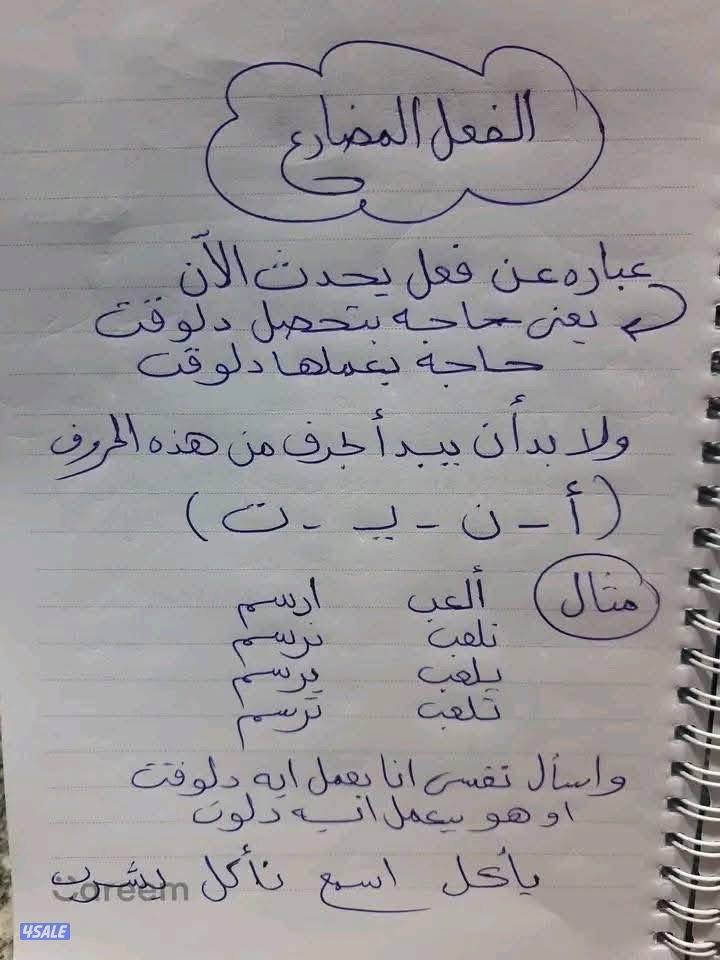 الفعل المضارع
عباره عن فعل يحدث الآن
يعنى حاجه بتحصل دلوقت
حاجة بعملها دلوقت
ولا بد أن يبدأ بحرف من هذه الحروف
(أ - ن - يـ - ت)
مثال ألعب ارسم
نلعب نرسم
يلعب يرسم
تلعب ترسم
واسأل نفسى انا بعمل ايه دلوقت
او هو بيعمل ايه دلوت
يأكل اسمع نأكل يشرب
Careem
4SALE